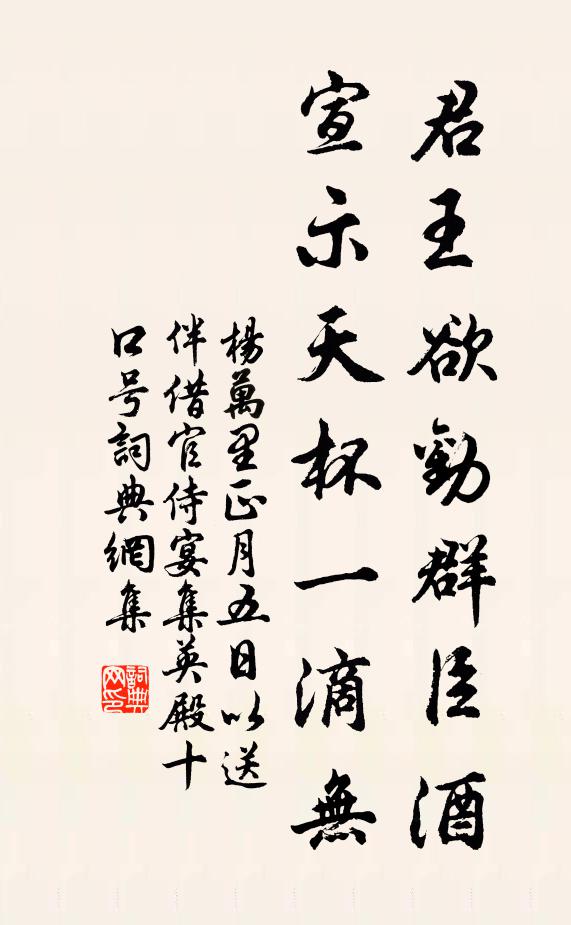 君王欲勸群臣酒
宣示天杯一滴無
楊萬里正月五日以送
伴借官侍宴集英殿十
口号詞典網集
詞典网印